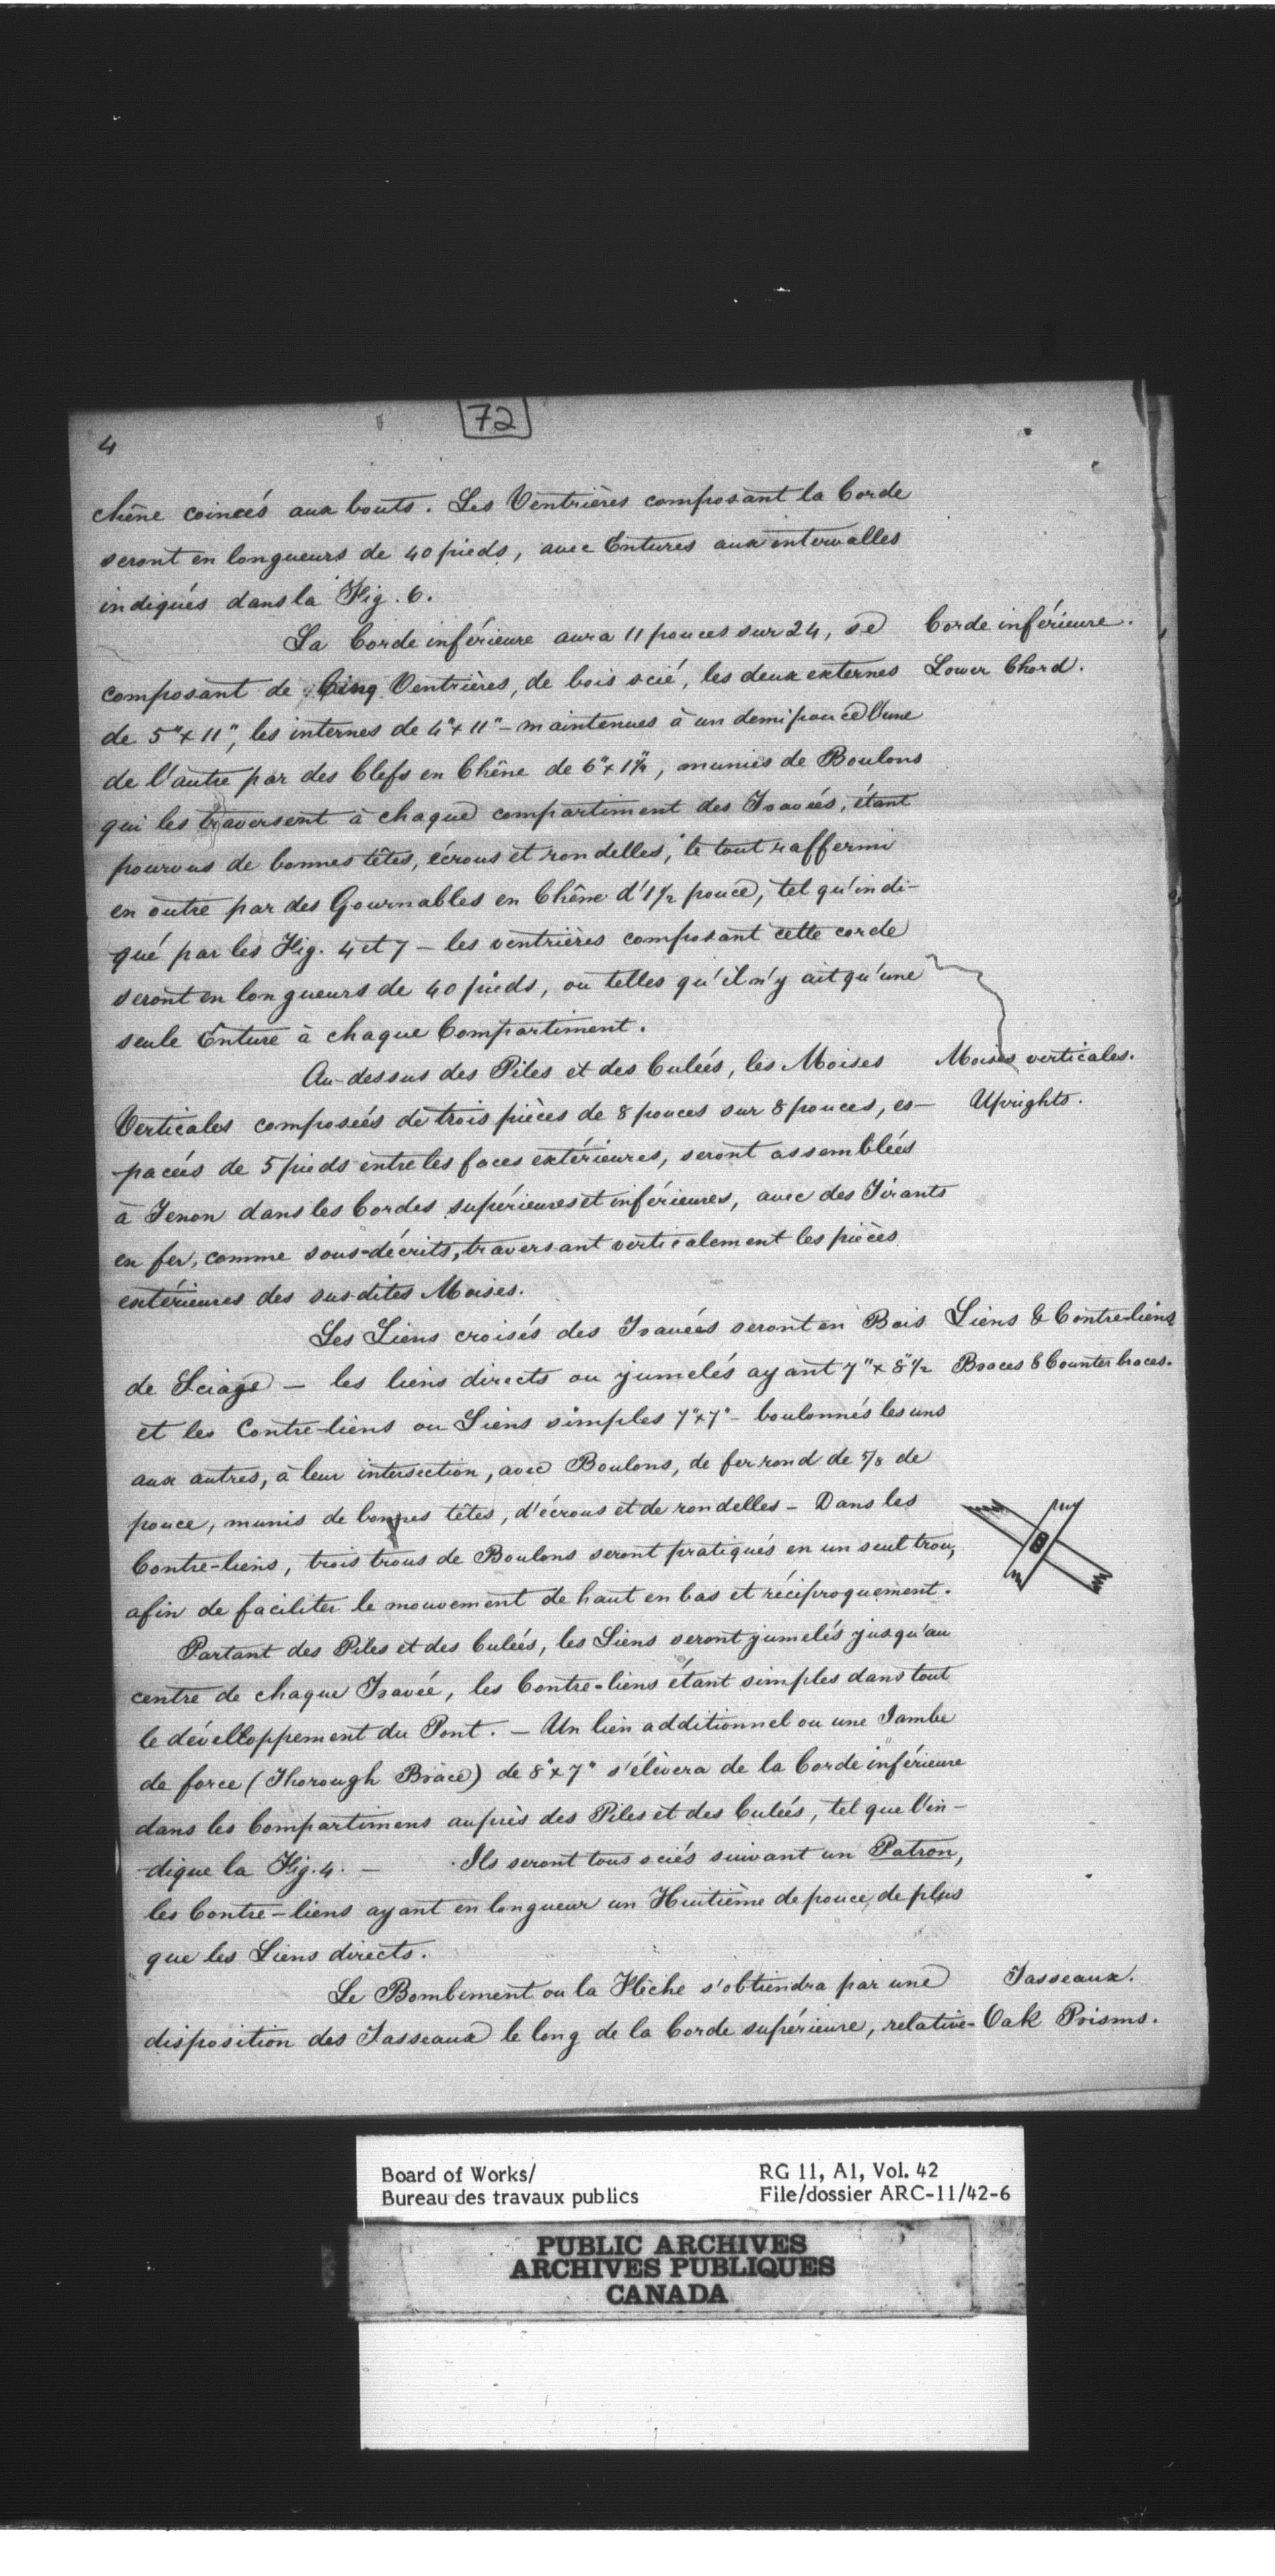 4
72
chêne coincés aux bouts. Les Ventrières composant la Corde
seront en longueurs de 40 pieds, avec Entures aux intervalles
indiqués dans la Fig. 6.
La Corde inférieure aura 11 pouces sur 24, se
Corde inférieure.
composant de Cinq Ventrières, de bois scié, les deux externes
Lower Chord.
de 5" x 11", les internes de 4" x 11" – maintenues à un demi pouce l'une
de l'autre par des Clefs en Chêne de 6" x 1¼", munies de Boulons
qui les traversent à chaque compartiment des Travées, étant
pourvus de bonnes têtes, écrous et rondelles, le tout raffermi
en outre par des Gournables en Chêne d'1½ pouce, tel qu'indi-
qué par les Fig. 4 et 7 – les ventrières composant cette corde
seront en longueurs de 40 pieds, ou telles qu'il n'y ait qu'une
seule Enture à chaque Compartiment.
Au-dessus des Piles et des Culées, les Moises
Moises verticales.
Verticales composées de trois pièces de 8 pouces sur 8 pouces, es-
Uprights.
pacées de 5 pieds entre les faces extérieures, seront assemblées
à Tenon dans les Cordes supérieures et inférieures, avec des Tirants
en fer, comme sous-décrits, traversant verticalement les pièces
extérieures des susdites Moises.
Les Liens croisés des Travées seront en Bois
Liens & Contre-liens
de Sciage – les liens directs ou jumelés ayant 7" x 8"½
Braces & Counter braces.
et les Contre-liens ou Liens simples 7" x 7" – boulonnés les uns
aux autres, à leur intersection, avec Boulons, de fer rond de 7/8 de
pouce, munis de bonnes têtes, d'écrous et de rondelles – Dans les
Contre-liens, trois trous de Boulons seront pratiqués en un seul trou,
afin de faciliter le mouvement de haut en bas et réciproquement.
Partant des Piles et des Culées, les Liens seront jumelés jusqu'au
centre de chaque Travée, les Contre-liens étant simples dans tout
le dévelloppement du Pont. – Un lien additionnel ou une Jambe
de force (Thorough Brace) de 8" x 7" s'élèvera de la Corde inférieure
dans les Compartimens auprès des Piles et des Culées, tel que l'in-
dique la Fig. 4. – Ils seront tous sciés suivant un Patron,
les Contre-liens ayant en longueur un Huitième de pouce, de plus
que les Liens directs.
Le Bombement ou la Flèche s'obtiendra par une
Tasseaux.
disposition des Tasseaux le long de la Corde supérieure, relative-
Oak Prisms.
Board of Works/
Bureau des travaux publics
RG 11, A1, Vol. 42
File/dossier ARC-11/42-6
PUBLIC ARCHIVES
ARCHIVES PUBLIQUES
CANADA